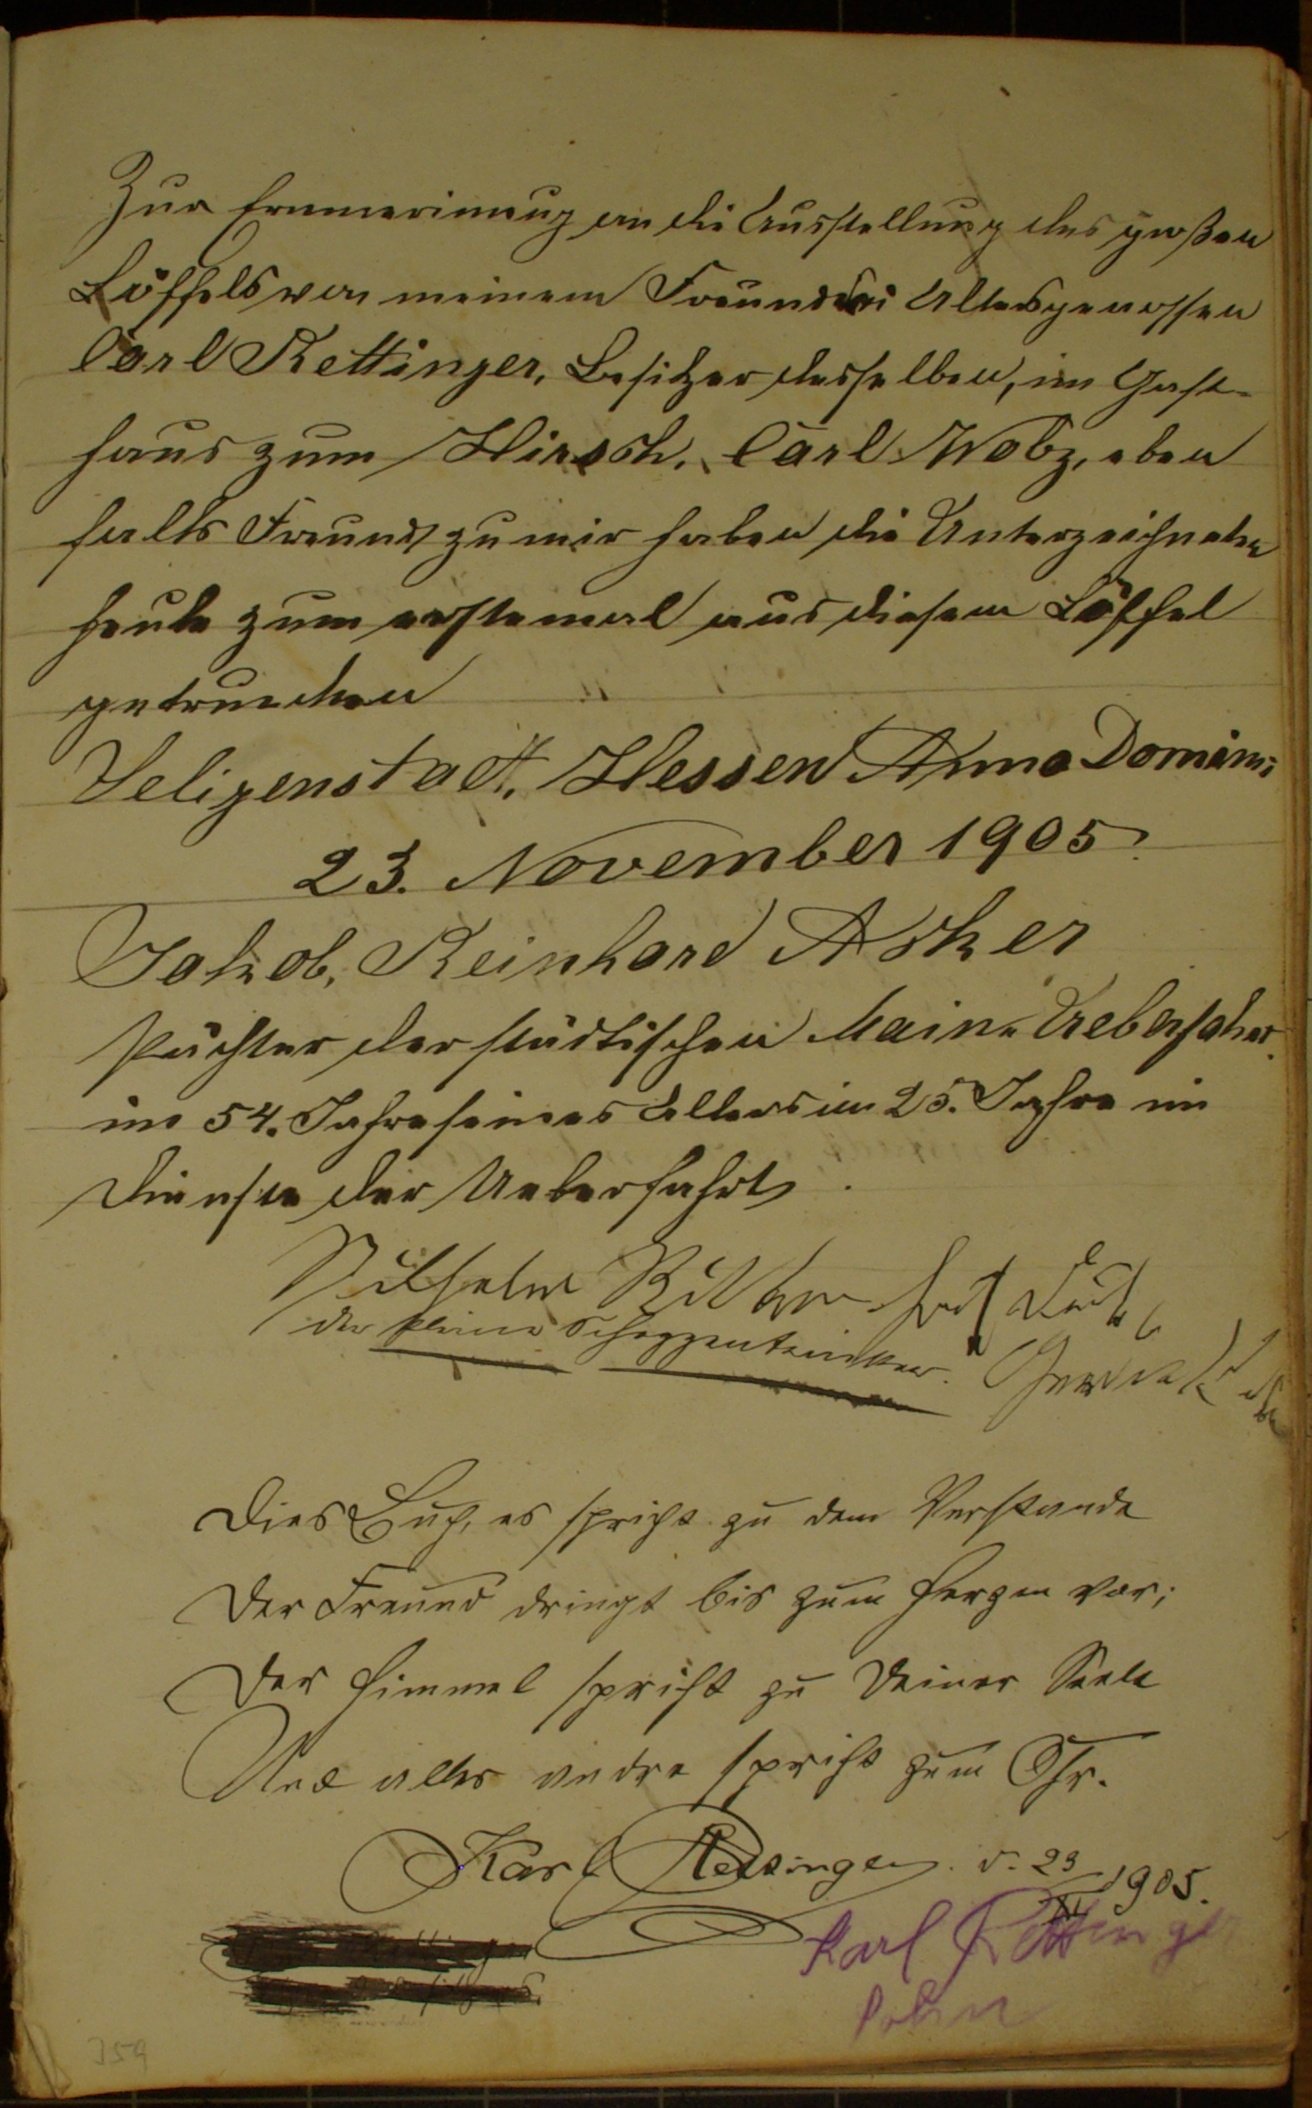 Zur Errinnerinnung an die Ausstellung des großen
Löffels von meinem Freunde Altersgenossen
Carl Rettinger, Besitzer desselben, im Gast-
haus zum Hirsch, Carl Wobz, eben
falls Freund zu mir haben die Unterzeichneten
heute zum erstemal aus diesem Löffel
getruncken
Seligenstadt, Hessen Anno Domini
23. November 1905.
Jakob, Reinhard Acker
Pächter der städtischen Main-Ueberfahrt.
im 54. Jahre seines Alters im 25. Jahre im
Dienste der Ueberfahrt.
Wilhelm
der kleine Schoppentrinker.
Dies Buch, es spricht zu dem Verstande
Der Freund dringt bis zum Herzen vor;
Der Himmel spricht zu Deiner Seele
Und alles andre spricht zum Ohr.
Karl Rettinger. d. 23/XI 1905.
Karl Rettinger
Sohn
359